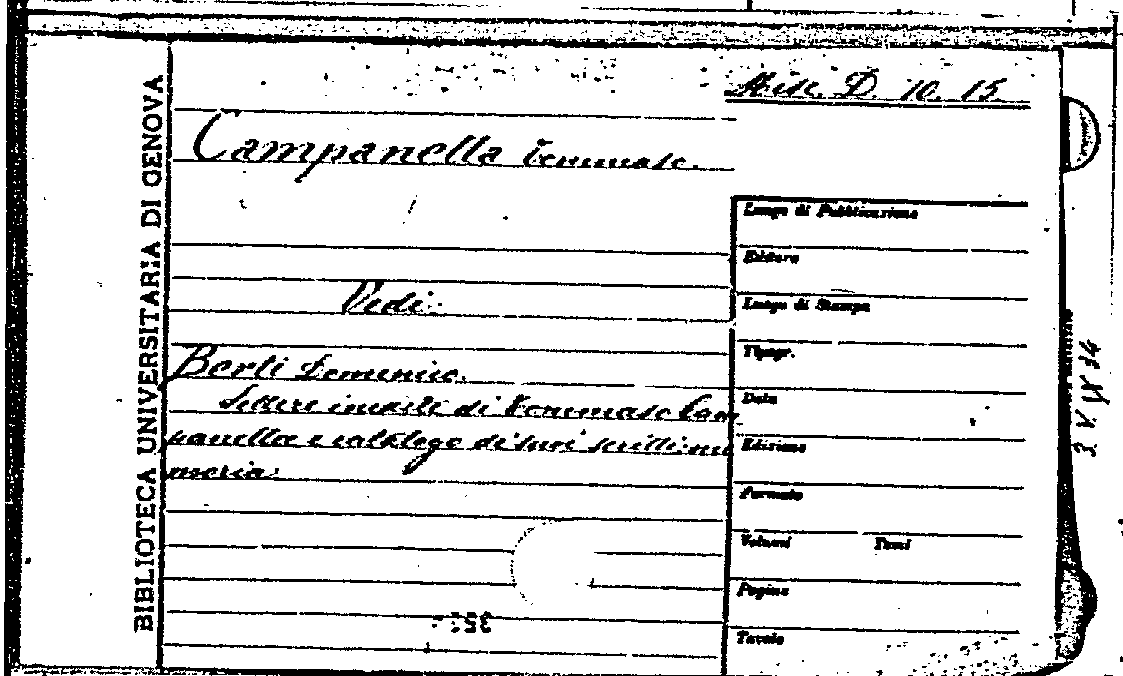 BIBLIOTECA UNIVERSITARIA DI GENOVA
Misc. D. 10. 15.
Campanella Tommaso.
Vedi:
Berti Domenico.
Lettere inedite di Tommaso Cam
panella e catalogo di suoi scritti: me
moria:
Luogo di Pubblicazione
Editore
Luogo di Stampa
Tipogr.
Data
Edizione
Formato
Volumi Tomi
Pagine
Tavole